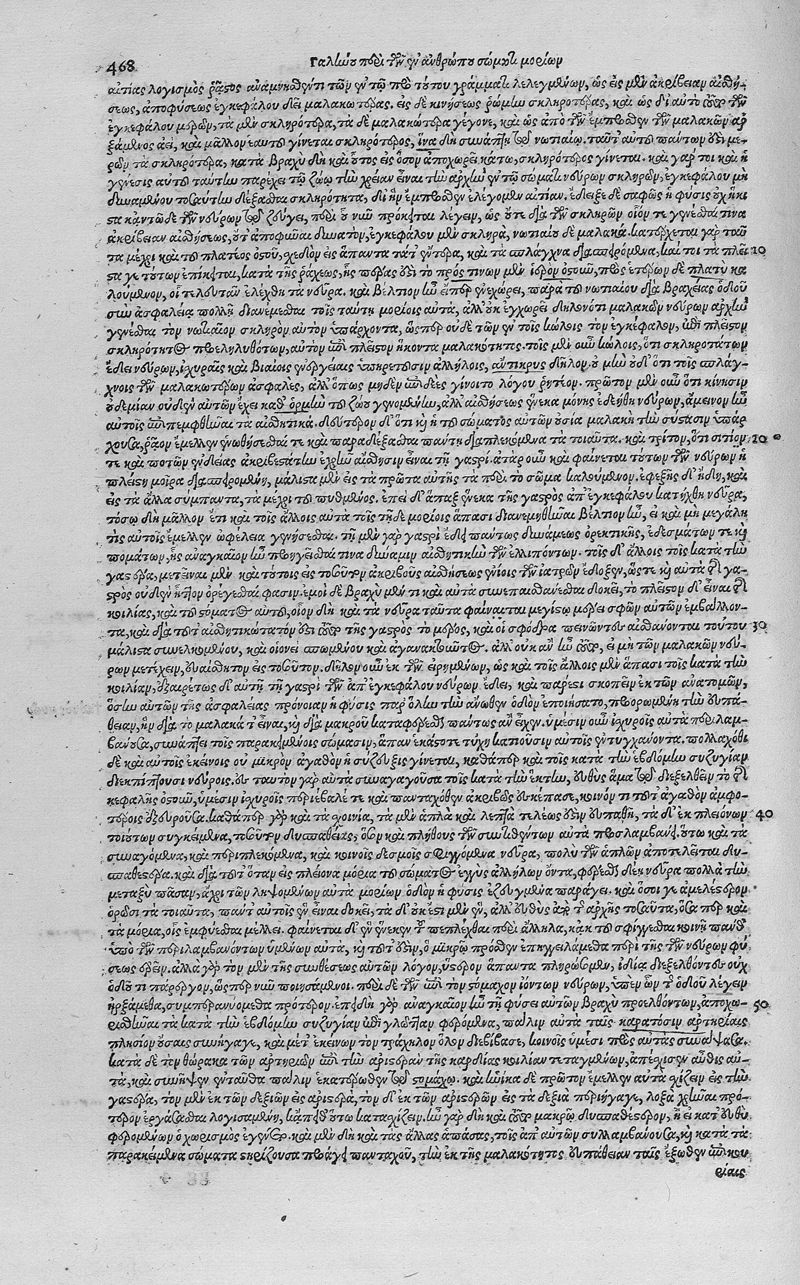 468 Γαληνοῦ περὶ τῶν ἐν ἀνθρώπου σώματι μορίων
αἰτίας λογισμὸς ῥᾷστος ἀναμνησθέντι τῶν ἐν τῷ πρὸ τούτου γράμματι λελεγμένων, ὡς εἰς μὲν ἀκρίβειαν αἰσθή-
σεως, ἀποφύσεως ἐγκεφάλου δεῖ μαλακωτέρας. εἰς δὲ κινήσεως ῥώμην σκληροτέρας, καὶ ὡς δι' αὐτὸ τῶν
ἐγκεφάλου μερῶν, τὰ μὲν σκληρότερα, τὰ δὲ μαλακώτερα γέγονε, καὶ ὡς ἀπὸ τῶν ἔμπροσθεν τῶν μαλακῶν ἀρ-
ξάμενος ἀεὶ, καὶ μᾶλλον ἑαυτοῦ γίνεται σκληρότερος, ἵνα δὴ συνάψῃ τῷ νωτιαίῳ. ταῦτ' αὐτοῦ πάντων ἐστὶ με-
ρῶν τὰ σκληρότερα, κατὰ βραχὺ δὴ καὶ οὗτος εἰς ὅσον ἀποχωρεῖ κάτω, σκληρότερος γίνεται. καὶ γάρ τοι καὶ ἡ
γένεσις αὐτοῦ ταύτην παρέχει τῷ ζώῳ τὴν χρείαν εἶναι τὴν ἀρχὴν ἐν τῷ σώματι νεύρων σκληρῶν, ἐγκεφάλου μὴ
δυναμένου τοσαύτην δέξασθαι σκληρότητα, δι' ἣν ἔμπροσθεν ἐλέγομεν αἰτίαν. ἔδειξε δὲ σαφῶς ἡ φύσις οὐχ ἥκι-
στα κἀν τῷδε τῶν νεύρων τῷ ζεύγει, περὶ οὗ νῦν πρόκειται λέγειν, ὡς οὔτε διὰ τῶν σκληρῶν οἷόν τε γενέσθαι τινα
ἀκρίβειαν αἰσθήσεως, οὔτ' ἀποφῦναι δυνατὸν, ἐγκεφάλου μὲν σκληρὰ, νωτιαίου δὲ μαλακά. κατέρχεται γὰρ ταῦ
τα μέχρι καὶ τοῦ πλατέος ὀστοῦ, σχεδὸν εἰς ἅπαντα τά τ' ἔντερα, καὶ τὰ σπλάγχνα διασπειρόμενα, καίτοι τὰ πλεῖ 10
στά γε τούτων ἐπίκειται, κατὰ τῆς ῥάχεως, ἧς πέρας ἐστὶ τὸ πρός τινων μὲν ἱερὸν ὀστοῦν, πρὸς ἑτέρων δὲ πλατὺ κα
λούμενον, οἷ τελευτᾶν ἐλέχθη τὰ νεῦρα. καὶ βέλτιον ἦν εἴπερ ἐνεχώρει, παρὰ τοῦ νωτιαίου διὰ βραχείας ὁδοῦ
σὺν ἀσφαλείᾳ πολλῇ διανέμεσθαι τοῖς ταύτῃ μορίοις αὐτὰ, ἀλλ' οὐκ ἐγχωρεῖ δηλονότι μαλακῶν νεύρων ἀρχὴν
γενέσθαι τὸν νωτιαῖον σκληρὸν αὐτὸν ὑπάρχοντα, ὥσπερ οὐδὲ τῶν ἐν τοῖς κώλοις τὸν ἐγκέφαλον, ἐπὶ πλεῖστον
σκληρότητος προεληλυθότων, αὐτὸν ἐπὶ πλεῖστον ἥκοντα μαλακότητος. τοῖς μὲν οὖν κώλοις, ὅτι σκληροτάτων
ἔδει νεύρων, ἰσχυραῖς καὶ βιαίοις ἐνεργείαις ὑπηρετήσειν ἀλλήλοις, ἄντικρυς δῆλον. οὐ μὴν οὐδ' ὅτι τοῖς σπλάγ-
χνοις τῶν μαλακωτέρων ἀσφαλὲς, ἀλλ' ὅπως μηδὲν ἐνδεὲς γίνοιτο λόγου ῥητέον. πρῶτον μὲν οὖν ὅτι κίνησιν
οὐδεμίαν οὐδὲν αὐτῶν ἔχει καθ' ὁρμὴν τοῦ ζώου γενομένην, ἀλλ' αἰσθήσεως ἕνεκα μόνης ἐδεήθη νεύρων, ἄμεινον ἦν
αὐτοῖς ἐπιπεμφθῆναι τὰ αἰσθητικά. δεύτερον δ' ὅτι καὶ ἡ τοῦ σώματος αὐτῶν οὐσία μαλακὴ τὴν σύστασιν ὑπάρ
χουσα, ῥᾷον ἔμελλεν ἑνωθήσεσθαί τε καὶ παραδέξασθαι πάντῃ διαπλεκόμενα τὰ τοιαῦτα. καὶ τρίτον, ὅτι σιτίων 20
τε καὶ ποτῶν ἐνδείας ἀκριβεστάτην ἐχρῆν αἴσθησιν εἶναι τῇ γαστρί. ἀτὰρ οὖν καὶ φαίνεται τούτων τῶν νεύρων ἡ
πλείστη μοῖρα διασπειρομένη, μάλιστα μὲν εἰς τὰ πρῶτα αὐτῆς τὰ περὶ τὸ σῶμα καλούμενον. ἐφεξῆς δ' ἤδη, καὶ
εἰς τὰ ἄλλα σύμπαντα, τὰ μέχρι τοῦ πυθμένος. ἐπεὶ δ' ἅπαξ ἕνεκα τῆς γαστρὸς ἀπ' ἐγκεφάλου κατήχθη νεῦρα,
τόσῳ δὴ μᾶλλον ἔτι καὶ τοῖς ἄλλοις αὐτὰ τοῖς τῇδε μορίοις ἅπασι διανεμηθῆναι βέλτιον ἦν, εἰ καὶ μὴ μεγάλη
τις αὐτοῖς ἔμελλεν ὠφέλεια γενήσεσθαι. τῇ μὲν γὰρ γαστρὶ ἔδει πάντως δυνάμεως ὀρεκτικῆς, ἐδεσμάτων τε καὶ
πομάτων, ἧς ἀναγκαῖον ἦν προηγεῖσθαί τινα δύναμιν αἰσθητικὴν τῶν ἐλλιπόντων. τοῖς δ' ἄλλοις τοῖς κατὰ τὴν
γαστέρα, μετεῖναι μὲν καὶ τούτοις τοιαύτης ἀκριβοῦς αἰσθήσεως ἐνίοις τῶν ἰατρῶν ἔδοξεν, ὥστε καὶ αὐτὰ τῆς γα-
στρὸς οὐδὲν ἧττον ὀρέγεσθαί φασιν. ἐμοὶ δὲ βραχὺ μέν τι καὶ αὐτὰ συνεπαισθάνεσθαι δοκεῖ, τὸ πλεῖστον δ' εἶναι τῆς
κοιλίας, καὶ τοῦ στόματος αὐτοῦ, οἷον δὴ καὶ τὰ νεῦρα ταῦτα φαίνεται μεγίστῳ μέρει σφῶν αὐτῶν ἐμβάλλον-
τα, καὶ διὰ τοῦτ' αἰσθητικώτατόν ἐστι τῆς γαστρὸς τὸ μέρος, καὶ οἱ σφόδρα πεινῶντες αἰσθάνονται τούτου 30
μάλιστα συνελκομένου, καὶ οἱονεὶ σπωμένου καὶ ἀγανακτοῦντος. ἀλλ' οὐκ ἂν ἦν, εἰ μὴ τῶν μαλακῶν νεύ-
ρων μετέχειν, εὐαίσθητον εἰς τοσοῦτον. δῆλον οὖν ἐκ τῶν εἰρημένων, ὡς καὶ τοῖς ἄλλοις μὲν ἅπασι τοῖς κατὰ τὴν
κοιλίαν, ἐξαιρέτως δ' αὐτῇ τῇ γαστρὶ τῶν ἀπ' ἐγκεφάλου νεύρων ἔδει, καὶ πάρεστι σκοπεῖν ἐκ τῶν ἀνατομῶν,
ὅσην αὐτῶν τῆς ἀσφαλείας πρόνοιαν ἡ φύσις παρ' ὅλην τὴν ἄνωθεν ὁδὸν ἐποιήσατο, προορωμένη τὴν δυσπά-
θειαν, ἣν διὰ τὸ μαλακά τ' εἶναι, καὶ διὰ μακροῦ καταφέρεσθαι πάντως ἂν ἔσχεν. ὑμέσιν οὖν ἰσχυροῖς αὐτὰ περιλαμ-
βάνουσα, συνάπτει τοῖς παρακειμένοις σώμασιν, ἅπαν ἑκάστοτε τύχῃ κατιοῦσιν αὐτοῖς ἐντυγχάνοντα. πολλαχόθι
δὲ καὶ αὐτοῖς ἐκείνοις οὐ μικρὸν ἀγαθὸν ἡ σύζευξις γίνεται, καθάπερ καὶ τοῖς κατὰ τὴν ἑβδόμην συζυγίαν
διεκπίπτουσι νεύροις. εἰς ταὐτὸν γὰρ αὐτὰ συναγαγοῦσα τοῖς κατὰ τὴν ἕκτην, εὐθὺς ἅμα τῷ διεξελθεῖν τὸ τῆς
κεφαλῆς ὀστοῦν, ὑμέσιν ἰσχυροῖς περιέβαλέ τε καὶ πανταχόθεν ἀκριβῶς ἐσκέπασε, κοινόν τι τοῦτ' ἀγαθὸν ἀμφο-
τέροις ἐξευροῦσα. καθάπερ γὰρ καὶ τὰ σχοινία, τὰ μὲν ἁπλᾶ καὶ λεπτὰ τελέως ἐστὶν εὐπαθῆ, τὰ δ' ἐκ πλειόνων 40
τοιούτων συγκείμενα, τοσοῦτον δυσπαθείας, ὅσον καὶ πλήθους τῶν συντιθέντων αὐτὰ προσλαμβάνει, οὕτω καὶ τὰ
συναγόμενα, καὶ περιπλεκόμενα, καὶ κοινοῖς δεσμοῖς σφιγγόμενα νεῦρα, πολὺ τῶν ἁπλῶν ἀποτελεῖται δυσ-
παθέστερα. καὶ διὰ τοῦθ' ὅταν εἰς πλείονα μόρια τοῦ σώματος ἐγγὺς ἀλλήλων ὄντα, φέρεσθαι δέῃ νεῦρα πολλὰ τὴν
μεταξὺ πᾶσαν, ἄχρι τῶν ληψομένων αὐτὰ μορίων ὁδὸν ἡ φύσις ἐζευγμένα παράγει. καὶ ὅσοι γε ἀμελέστερον
ὁρῶσι τὰ τοιαῦτα, πάντ' αὐτοῖς ἓν εἶναι δοκεῖ, τὰ δ' οὐκ ἔστι μὲν ἓν, ἀλλ' εὐθὺς ἀπὸ τῆς ἀρχῆς τοσαῦτα, ὅσα περ καὶ
τὰ μόρια, οἷς ἐμφύεσθαι μέλλει. φαίνεται δ' ἓν ἕνεκεν τοῦ πεπλέχθαι περὶ ἄλληλα, κἀκ τοῦ σφίγγεσθαι κοινῇ πάνθ'
ὑπὸ τῶν περιλαμβανόντων ὑμένων αὐτὰ, καὶ τοῦτ' ἔστιν, ὃ μικρῷ πρόσθεν ἐπηγγειλάμεθα περὶ τῆς τῶν νεύρων φύ
σεως ἐρεῖν. ἀλλὰ γὰρ τὸν μὲν τῆς συνθέσεως αὐτῶν λόγον, ὕστερον ἅπαντα πληρώσομεν, ἰδίᾳ διεξελθόντες οὐχ
ὁδοῦ τι πάρεργον, ὥσπερ νῦν ποιησάμενοι. περὶ δὲ τῶν ἐπὶ τὸν στόμαχον ἰόντων νεύρων, ὑπὲρ ὧν τῆς ὁδοῦ λέγειν
ἠρξάμεθα, συμπερανούμεθα πρότερον. ἐπειδὴ γὰρ ἀναγκαῖον ἦν τῇ φύσει αὐτῶν βραχὺ προελθόντων, ἀποχω- 50
ρισθῆναι τὰ κατὰ τὴν ἑβδόμην συζυγίαν ἐπὶ γλῶτταν φερόμενα, πάλιν αὐτὰ ταῖς καρωτίσιν ἀρτηρίαις
πλησίον οὔσαις συνήγαγε, καὶ μετ' ἐκείνων τὸν τράχηλον ὅλον διεβίβασε, κοινοῖς ὑμέσι πρὸς αὐτὰς συνάψασα.
κατὰ δὲ τὸν θώρακα τῶν ἀρτηριῶν ἐπὶ τὴν ἀριστερὰν τῆς καρδίας κοιλίαν τεταγμένων, ἀπέσχισεν αὖθις αὐ-
τὰ, καὶ συνῆψεν ἐνταῦθα πάλιν ἑκατέρωθεν τῷ στομάχῳ. καὶ ἡνίκα δὲ πρῶτον ἔμελλεν αὐτὰ σχίζειν εἰς τὴν
γαστέρα, τὸν μὲν ἐκ τῶν δεξιῶν εἰς ἀριστερὰ, τὸν δ' ἐκ τῶν ἀριστερῶν εἰς τὰ δεξιὰ περιήγαγε, λοξὰ σχῆμα πρό-
τερον ἐργάσασθαι λογισαμένη, κἄπειθ' οὕτω κατασχίζειν. ἦν γὰρ δὴ καὶ μακρῷ δυσπαθέστερον, ἢ εἰ κατ' εὐθὺ
φερομένων ὁ χωρισμὸς ἐγένετο. καὶ μὲν δὴ καὶ τὰς ἄλλας ἁπάσας, τοῖς ἀπ' αὐτῶν συλλαμβάνουσα, καὶ κατὰ τὰ
παρακείμενα σώματα στηρίζουσα προάγει πανταχοῦ, τὴν ἐκ τῆς μαλακότητος εὐπάθειαν ταῖς ἔξωθεν ἐπικου
ρίαις